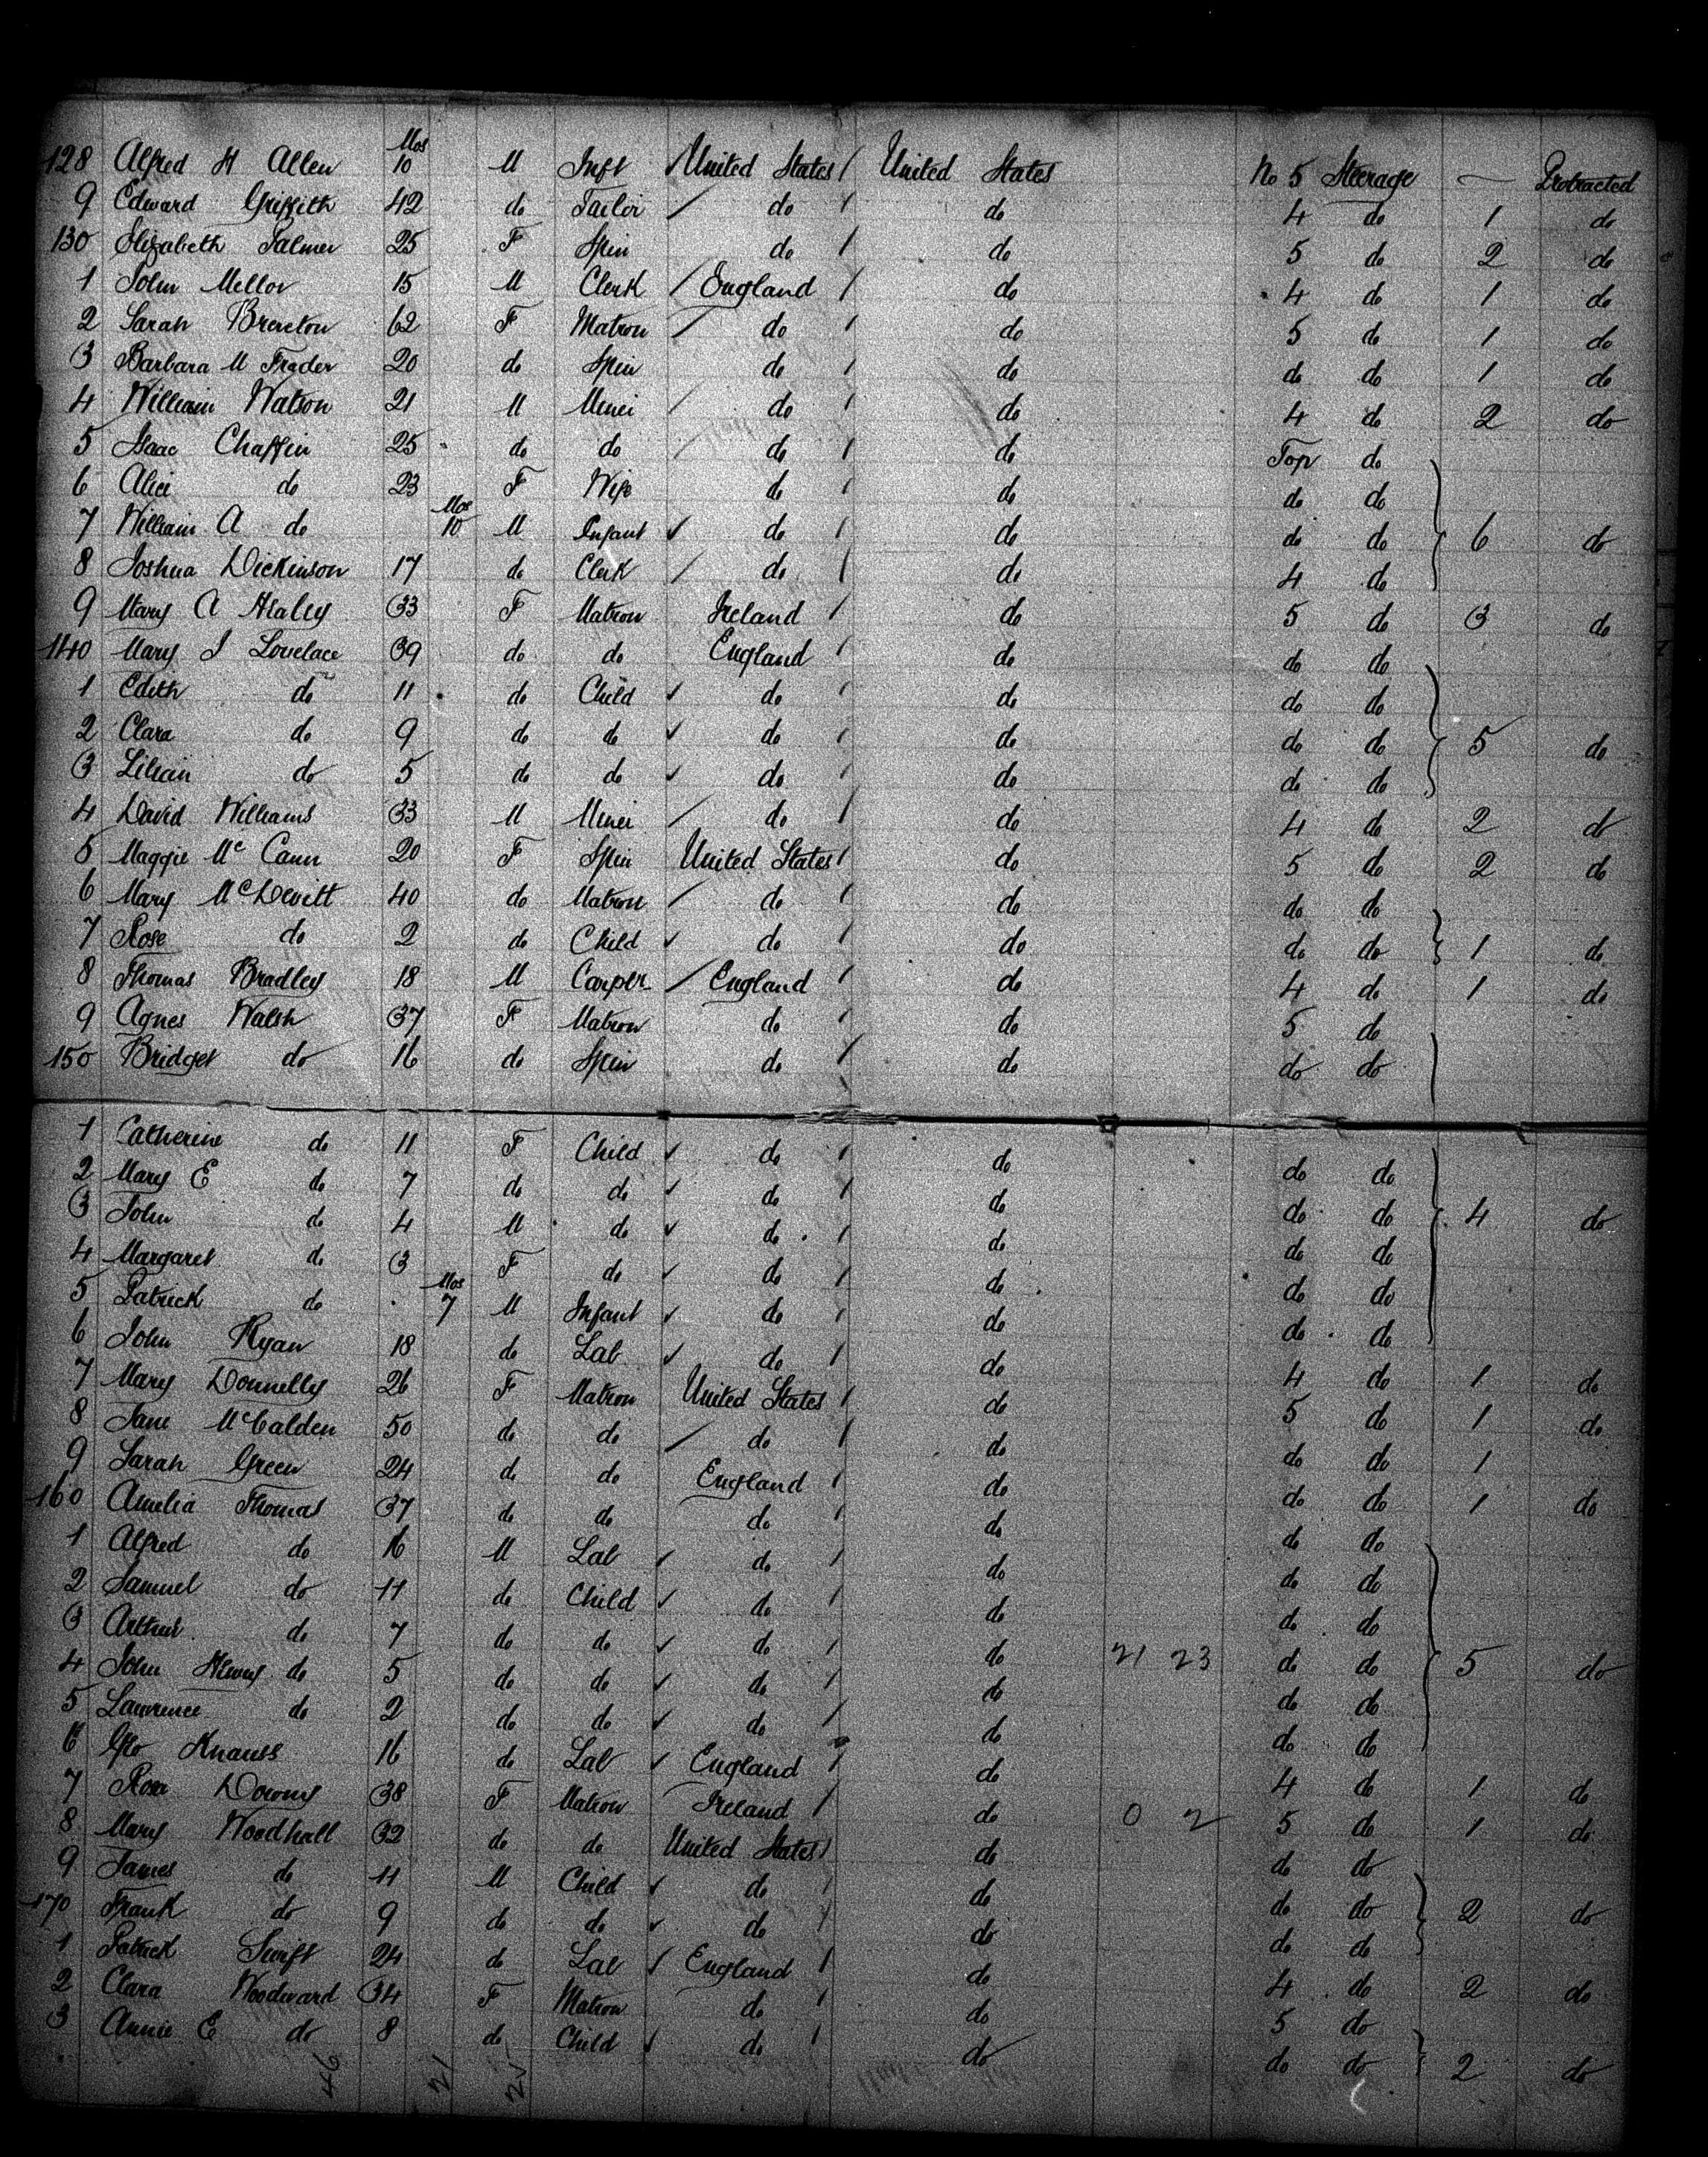 128 Alfred H Allen Mos 10 M Inft United States United States No 5 Steerage — Protracted
9 Edward Griffith 42 do Tailor do do 4 do 1 do
130 Elizabeth Palmer 25 F Spin do do 5 do 2 do
1 John Mellor 15 M Clerk England do 4 do 1 do
2 Sarah Brereton 62 F Matron do do 5 do 1 do
3 Barbara M Frader 20 do Spin do do do do 1 do
4 William Watson 21 M Miner do do 4 do 2 do
5 Isaac Chaffin 25 do do do do Top do
6 Alice do 23 F Wife do do do do
7 William A do Mos 10 M Infant do do do do 6 do
8 Joshua Dickinson 17 do Clerk do do 4 do
9 Mary A Healey 33 F Matron Ireland do 5 do 3 do
140 Mary J Lovelace 39 do do England do do do
1 Edith do 11 do Child do do do do
2 Clara do 9 do do do do do do 5 do
3 Lilian do 5 do do do do do do
4 David Williams 33 M Miner do do 4 do 2 do
5 Maggie McCann 20 F Spin United States do 5 do 2 do
6 Mary McDevitt 40 do Matron do do do do
7 Rose do 2 do Child do do do do 1 do
8 Thomas Bradley 18 M Carptr England do 4 do 1 do
9 Agnes Walsh 37 F Matron do do 5 do
150 Bridget do 16 do Spin do do do do
1 Catherine do 11 F Child do do do do
2 Mary E do 7 do do do do do do 4 do
3 John do 4 M do do do do do
4 Margaret do 3 F do do do do do
5 Patrick do Mos 7 M Infant do do do do
6 John Ryan 18 do Lab do do 4 do 1 do
7 Mary Donnelly 26 F Matron United States do 5 do 1 do
8 Jane McCalden 50 do do do do do do 1
9 Sarah Green 24 do do England do do do 1 do
160 Amelia Thomas 37 do do do do do do
1 Alfred do 16 M Lab do do do do
2 Samuel do 11 do Child do do do do
3 Arthur do 7 do do do do 21 23 do do 5 do
4 John Henry do 5 do do do do do do
5 Lawrence do 2 do do do do do do
6 Geo Knauss 16 do Lab England do 4 do 1 do
7 Rosa Downs 38 F Matron Ireland do 0 2 5 do 1 do
8 Mary Woodhall 32 do do United States do do do
9 James do 11 M Child do do do do 2 do
170 Frank do 9 do do do do do do
1 Patrick Swift 24 do Lab England do 4 do 2 do
2 Clara Woodward 34 F Matron do do 5 do
3 Annie E do 8 do Child do do do do 2 do
46 21 25